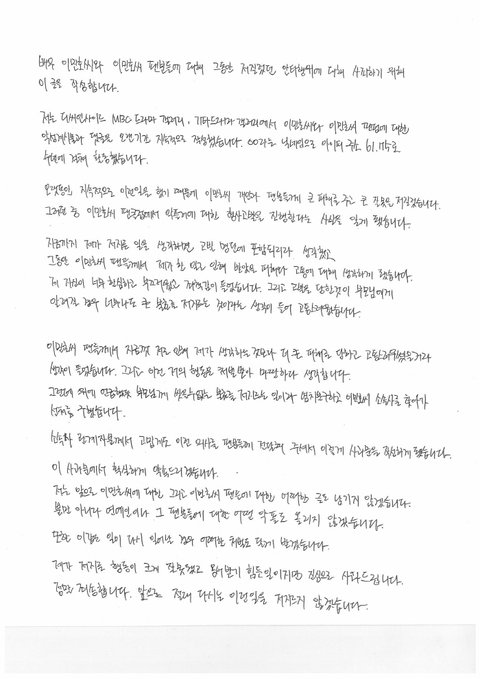 배우 이민호씨와 이민호씨 팬분들에 대해 그동안 저질렀던 안티행위에 대해 사과하기 위해
이 글을 작성합니다.
저는 디씨인사이드 MBC 드라마 갤러리, 기타드라마 갤러리에서 이민호씨와 이민호씨 팬덤에 대한
악성게시물과 댓글을 오랜기간 지속적으로 작성했습니다. 00라는 닉네임으로 아이피 주소 61.75로
수년에 걸쳐 활동했습니다.
오랫동안 지속적으로 이런일을 했기 때문에 이민호씨 개인과 팬분들께 큰 피해를 주고 큰 잘못을 저질렀습니다.
그러던 중 이민호씨 팬클럽에서 악플러에 대한 형사고발을 진행한다는 사실을 알게 됐습니다.
지금까지 제가 저지른 일을 생각하면 고발 명단에 포함되리라 생각했고
그동안 이민호씨 팬분들께서 제가 한 일로 인해 받았을 피해와 고통에 대해 생각하게 됐습니다.
제 자신이 너무 한심하고 부끄러웠고 죄책감이 들었습니다. 그리고 고발을 당한것이 부모님에게
알려질 경우 너무나도 큰 불효를 저지르는 것이라는 생각이 들어 고통스러웠습니다.
이민호씨 팬분들께서 지금껏 저로 인해 제가 생각하는 것보다 더 큰 피해를 당하고 고통스러우셨을거라
생각이 들었습니다. 그리고 이런 저의 행동은 처벌 받아 마땅하다 생각합니다.
그런데 제가 연로하신 부모님께 씻을수없는 불효를 저지르는 일이라 염치불구하고 이렇게 소속사를 찾아가
선처를 구했습니다.
소속사 관계자분께서 고맙게도 이런 의사를 팬분들께 전달해 주셔서 이렇게 사과문을 작성하게 됐습니다.
이 사과문에서 확실하게 약속드리겠습니다.
저는 앞으로 이민호씨에 대한 그리고 이민호씨 팬들에 대한 어떠한 글도 남기지 않겠습니다.
뿐만 아니라 연예인이나 그 팬분들에 대한 어떤 악플도 올리지 않겠습니다.
또한 이같은 일이 다시 일어날 경우 어떠한 처벌도 달게 받겠습니다.
제가 저지른 행동이 크게 잘못됐고 용서받기 힘든일이지만 진심으로 사과드립니다.
정말 죄송합니다. 앞으로 절대 다시는 이런일을 저지르지 않겠습니다.